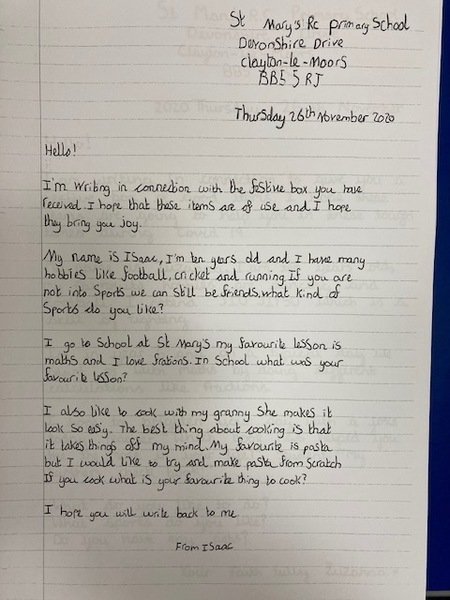 St Mary's RC primary School
Devonshire Drive
Clayton-le-Moors
BB5 5RJ
Thursday 26th November 2020
Hello!
I'm writing in connection with the festive box you have
received. I hope that these items are of use and I hope
they bring you joy.
My name is Isaac, I'm ten years old and I have many
hobbies like football, cricket and running. If you are
not into sports we can still be friends. what kind of
Sports do you like?
I go to school at St Mary's my favourite lesson is
maths and I love frations. In School what was your
favourite lesson?
I also like to cook with my granny She makes it
look so easy. The best thing about cooking is that
it takes things off my mind. My favourite is pasta
but I would like to try and make pasta from scratch
If you cook what is your favourite thing to cook?
I hope you will write back to me.
From Isaac